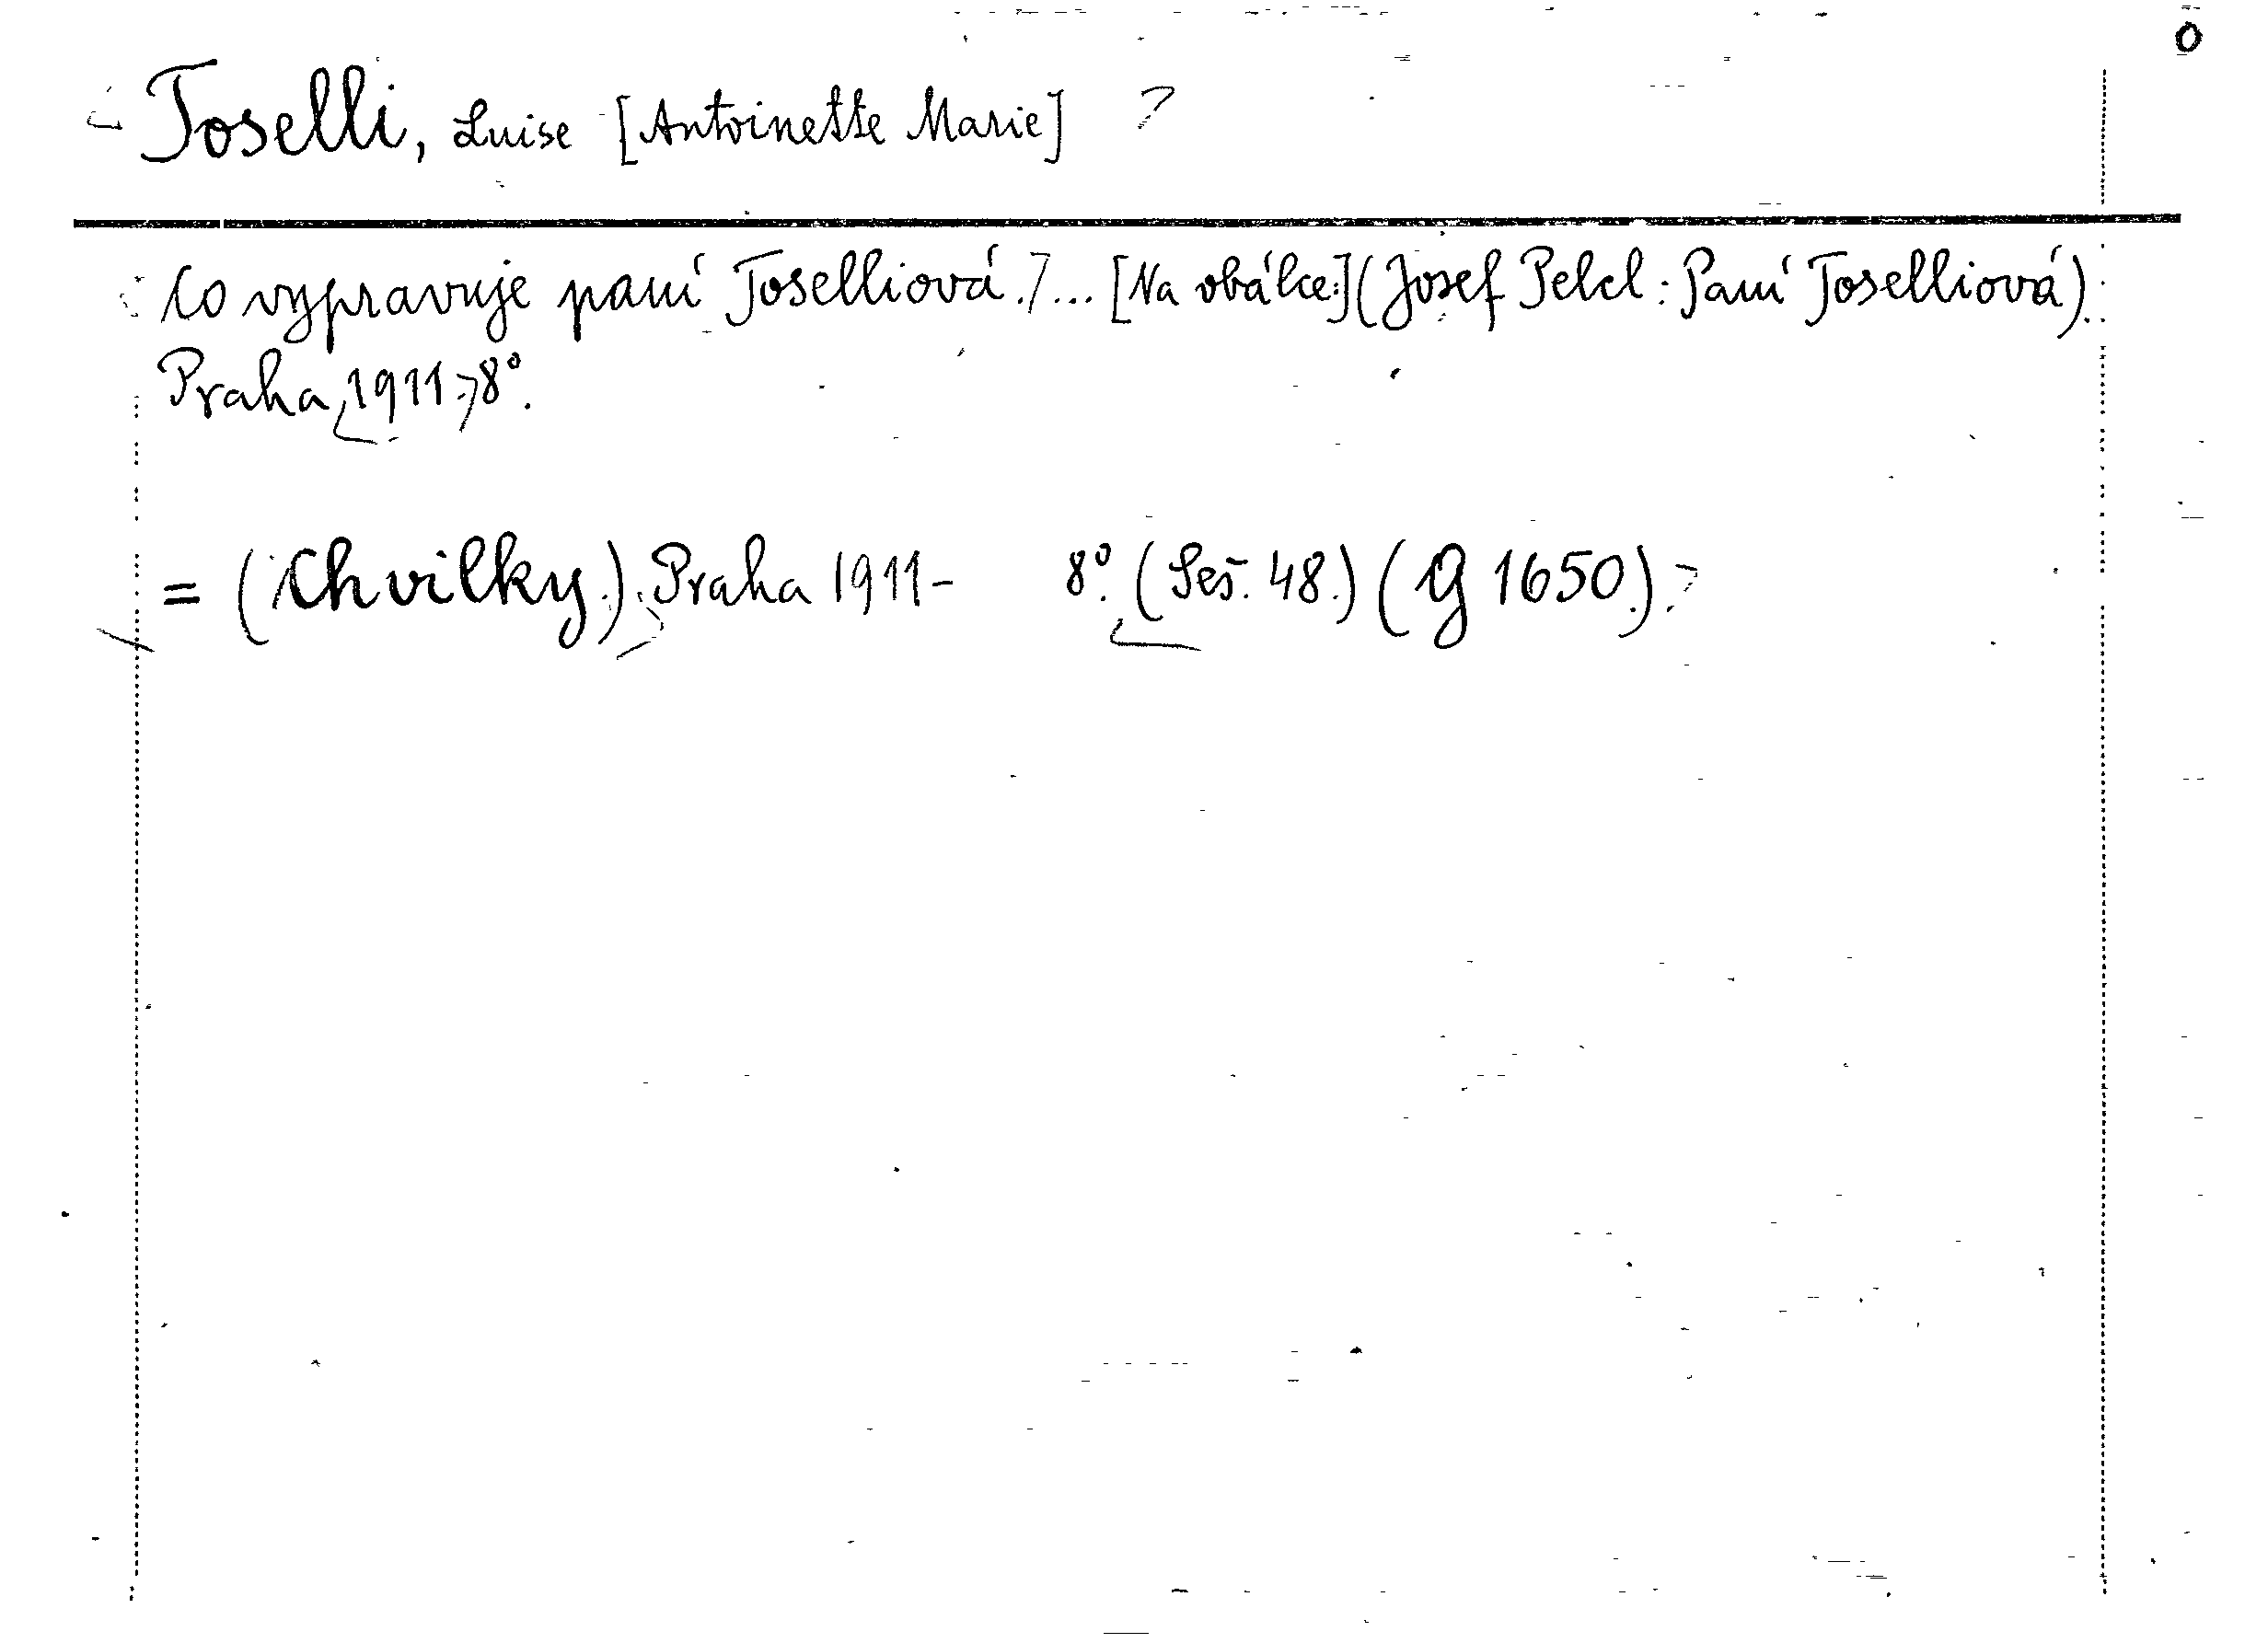 0
Toselli, Luise [Antoinette Marie]
Co vypravuje paní Toselliová.]... [Na obálce:] (Josef Pelcl: Paní Toselliová).
Praha, 1911. 8°.
= (Chvilky.). Praha 1911- 8°. (Seš. 48.) (G 1650.).